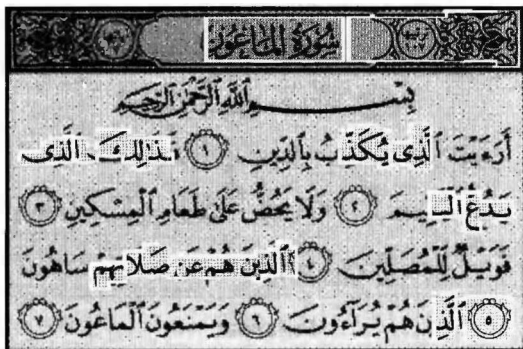 سُورَةُ المَاعُونِ
بِسْمِ اللَّهِ الرَّحْمَٰنِ الرَّحِيمِ
أَرَءَيْتَ الَّذِى يُكَذِّبُ بِالدِّينِ ١ فَذَٰلِكَ الَّذِى
يَدُعُّ الْيَتِيمَ ٢ وَلَا يَحُضُّ عَلَىٰ طَعَامِ الْمِسْكِينِ ٣
فَوَيْلٌ لِلْمُصَلِّينَ ٤ الَّذِينَ هُمْ عَن صَلَاتِهِمْ سَاهُونَ
٥ الَّذِينَ هُمْ يُرَاءُونَ ٦ وَيَمْنَعُونَ الْمَاعُونَ ٧